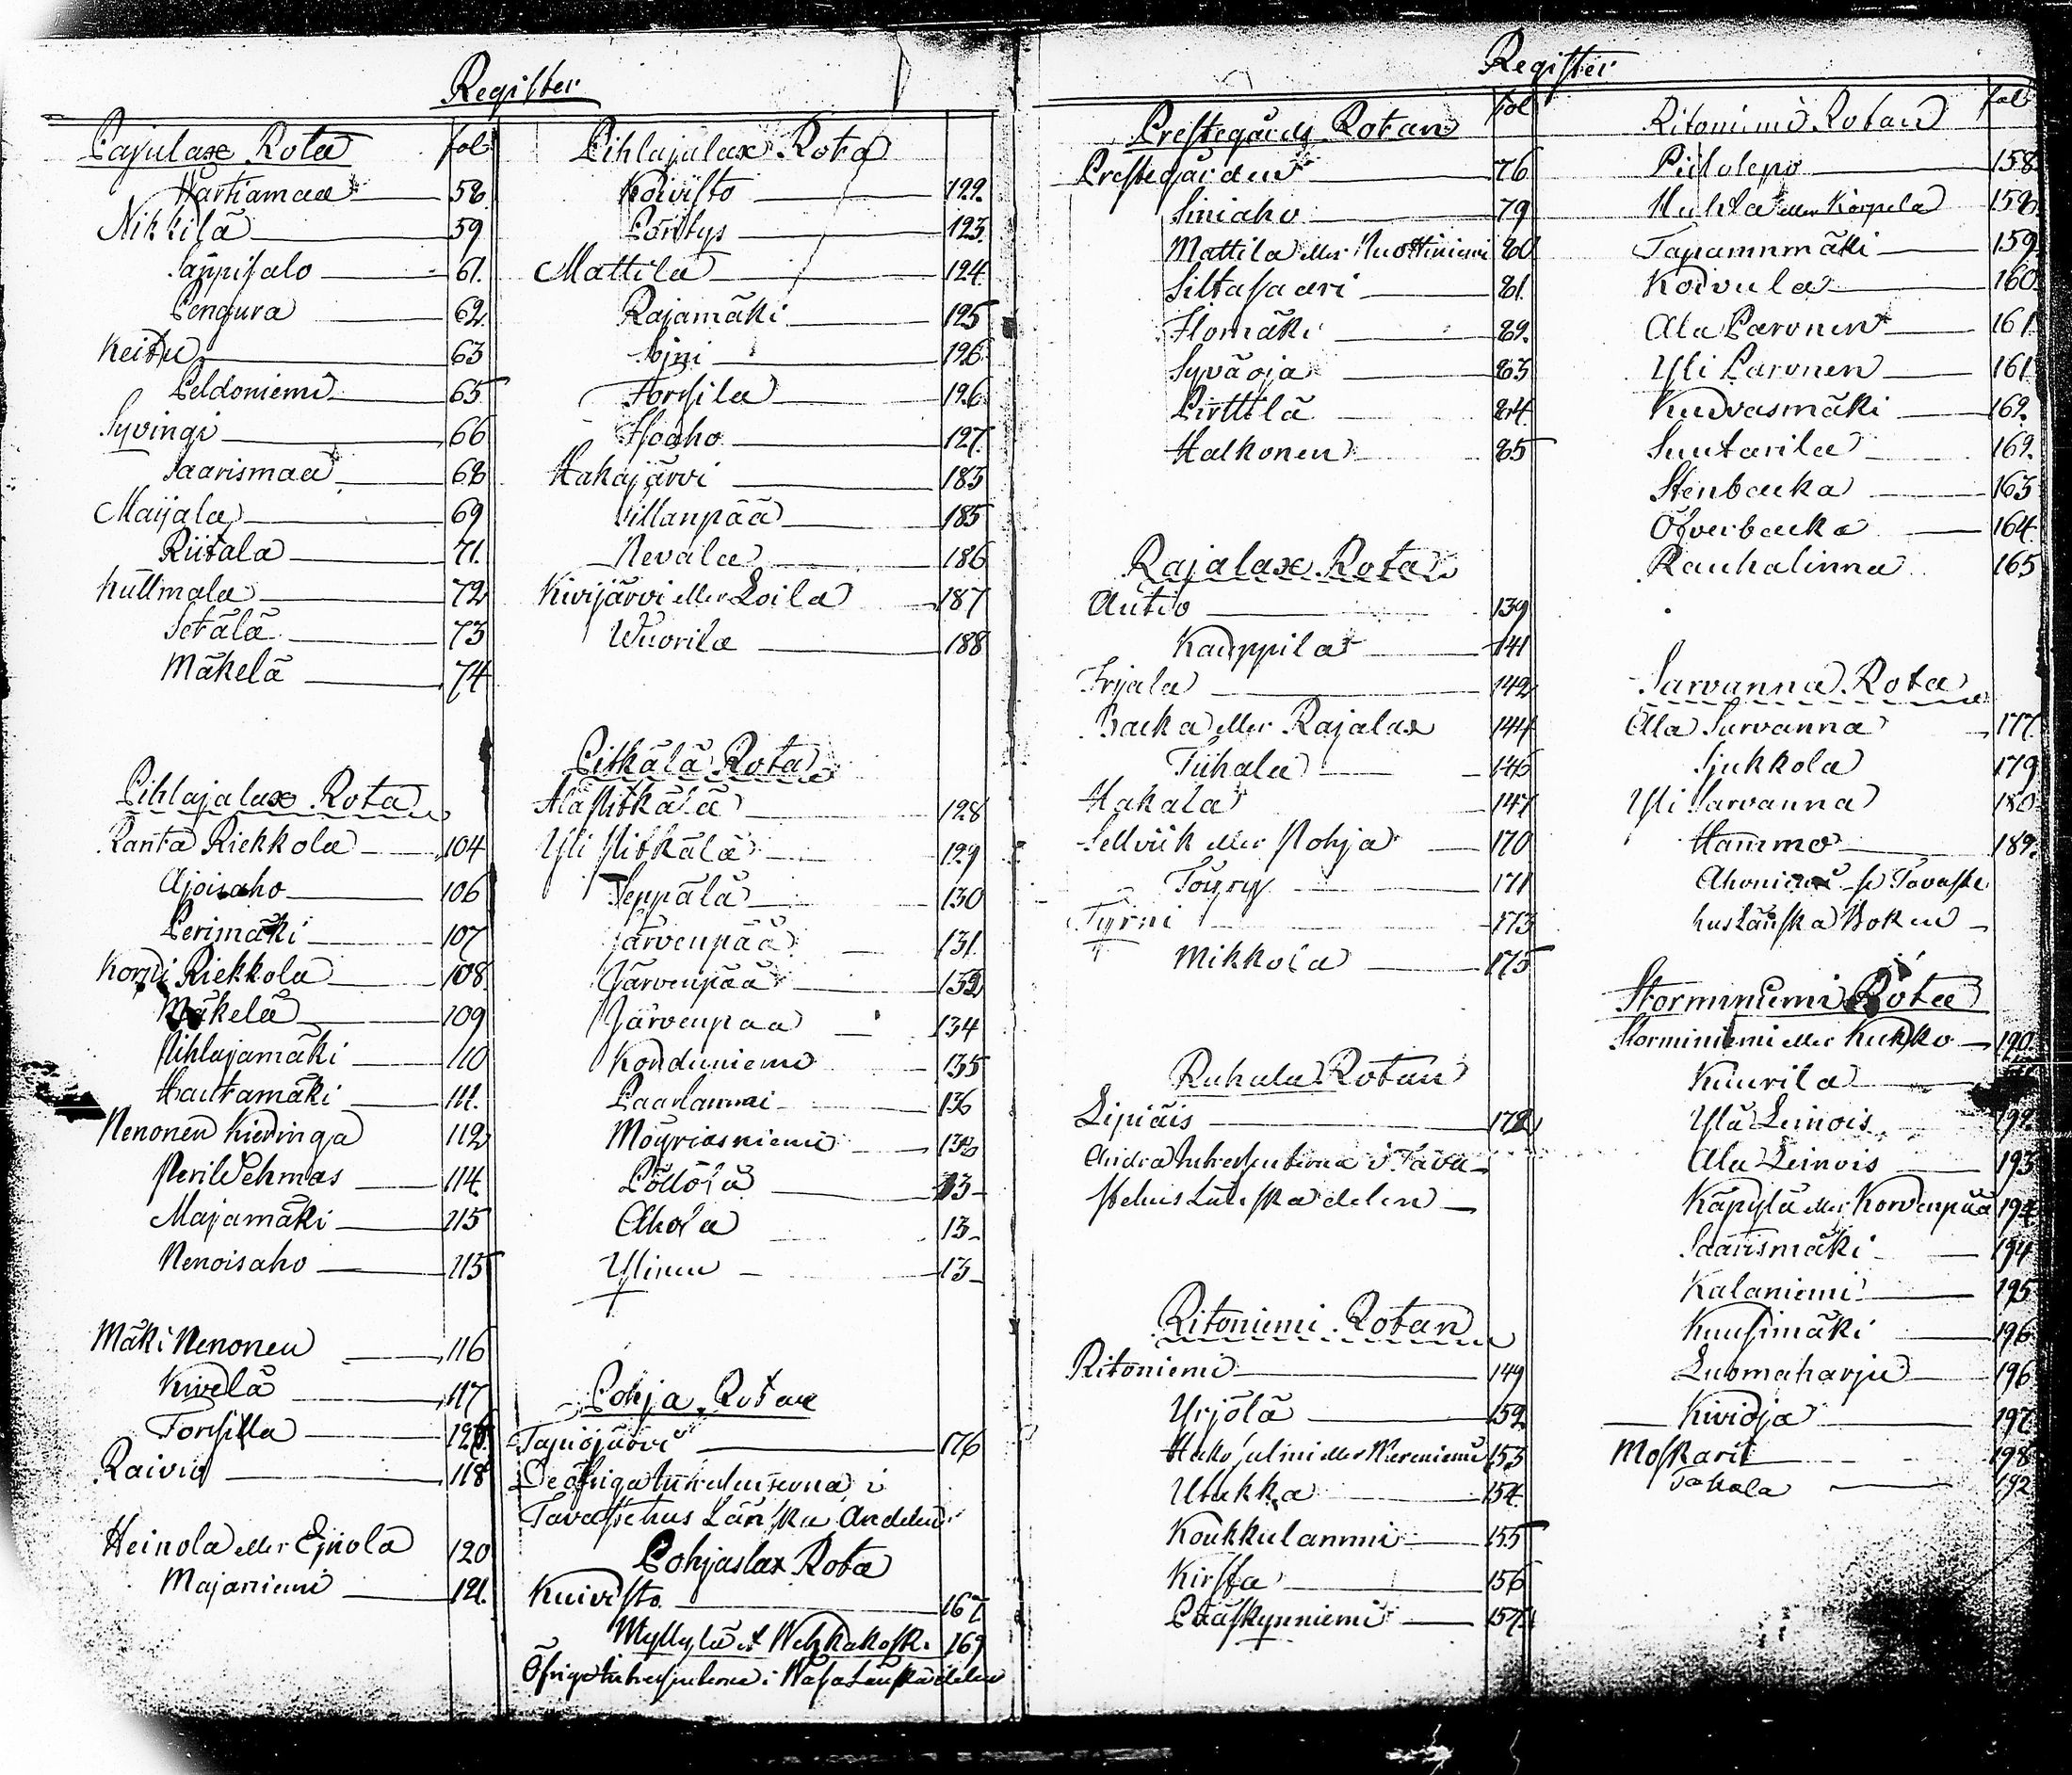 Register
Pajulax Rota fol
Hartiamaa 58
Nikkilä 59
Sappisalo 61.
Pengura 62
Keitu 63
Peldoniemi 65
Syvingi 66
Saarismaa 68
Maijala 69
Riitala 71.
Küttmala 72
Setälä 73
Mäkelä 74
Pihlajalax Rota
Ranta Riekkola 104
Ajoisaho 106
Perimäki 107
Korpi Riekkola 108
Mäkelä 109
Pihlajamäki 110
Hautamäki 111.
Nenonen Kieringa 112
Peril Lehmas 114.
Majamäki 115
Nenoisaho 115
Mäki Nenonen 116
Kivelä 117
Forssilla
Raivio 118
Heinola eller Ejnola 120
Majaniemi 121.
Pihlajalax Rota
Koivisto 122.
Pöntys 123.
Mattila 124.
Rajamäki 125
126
Forssila 126
Hoaho 127.
Hakajärvi 183
Sillanpää 185
Nevala 186
Kivijärvi eller Loila 187
Wuorila 188
Pitkälä Rota
Ala Pitkälä 128
Yli Pitkälä 129
Seppälä 130
Järvenpää 131
Järvenpää 132
Järvenpaa 134
Konduniemi 135
Paarlammi 136
Möyriäsniemi
Pöllölä
Ahola 13
Ylinen 13
Pohja Rotan
Tapiojärvi 176
De öfriga Intressenterna i
Tavastehus Länska Andelen
Pohjaslax Rota
Kuivisto 167
Myllylä et Wehkakoski 169
Öfriga Intressenterna i Wasa Länska delen
Register
Prestegårds Rotan fol
Prestegården 76
Siniaho 79
Mattila eller Nuottiniemi 80
Siltasaari 81.
Ilomäki 82.
Syväoja 83
Pirttilä 84.
Halkonen 85
Rajalax Rota
Autio 139
Kauppila 141
Irjala 142
Backa eller Rajalax 144
Tiihala 146
Hakala 147
Sellviik eller Pohja 170
Töyry 171
Tyrni 173
Mikkola 175
Ruhala Rotan
Lipiäis 172
Andra Intressenterna i Tava-
stehus Länska delen
Ritoniemi Rotan
Ritoniemi 149
Yrjölä 152.
Hako Salmi eller Wereniemi 153
Utukka 154
Koukkulammi 155
Kirssa 156
Pääskynniemi 157.
Ritoniemi Rotan fol
Pietolepo 158
Huhta eller Körpela 158
Tapaninmäki 159
Koivula 160
Ala Paronen 161.
Yli Paronen 161
Kuivasmäki 162.
Suutarila 162.
Stenbacka 163
Öfverbacka 164.
Rauhalinna 165
Sarvanna Rota
Ala Sarvanna 177.
Sjukkola 179
Yli Sarvanna 180
Hammo 182.
Ahoniemi se Tavaste
hus Länska Boken
Storminiemi Rota
Storminiemi eller Kukko 190.
Kuurila
Ylä Leinois 192
Ala Leinois 193
Käpylä eller Korvenpää 194
Saarismäki 194
Kalaniemi 195
Kuusimäki 196
Luomaharju 196
Kivioja 197
Moskari 198
Tokola 192